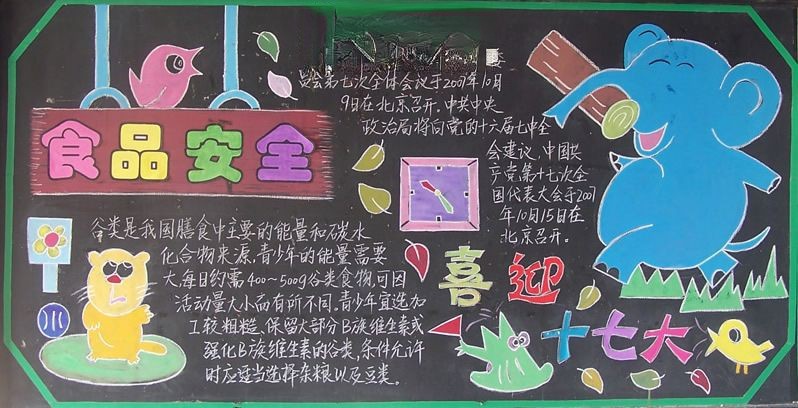 食品安全
员会第七次全体会议于2007年10月
9日在北京召开。中共中央
政治局将向党的十六届七中全
会建议，中国共
产党第十七次全
国代表大会于2007
年10月15日在
北京召开。
谷类是我国膳食中主要的能量和碳水
化合物来源，青少年的能量需要
大，每日约需400～500g谷类食物，可因
活动量大小而有所不同。青少年宜选加
工较粗糙、保留大部分B族维生素或
强化B族维生素的谷类，条件允许
时应适当选择杂粮以及豆类。
喜迎
十七大